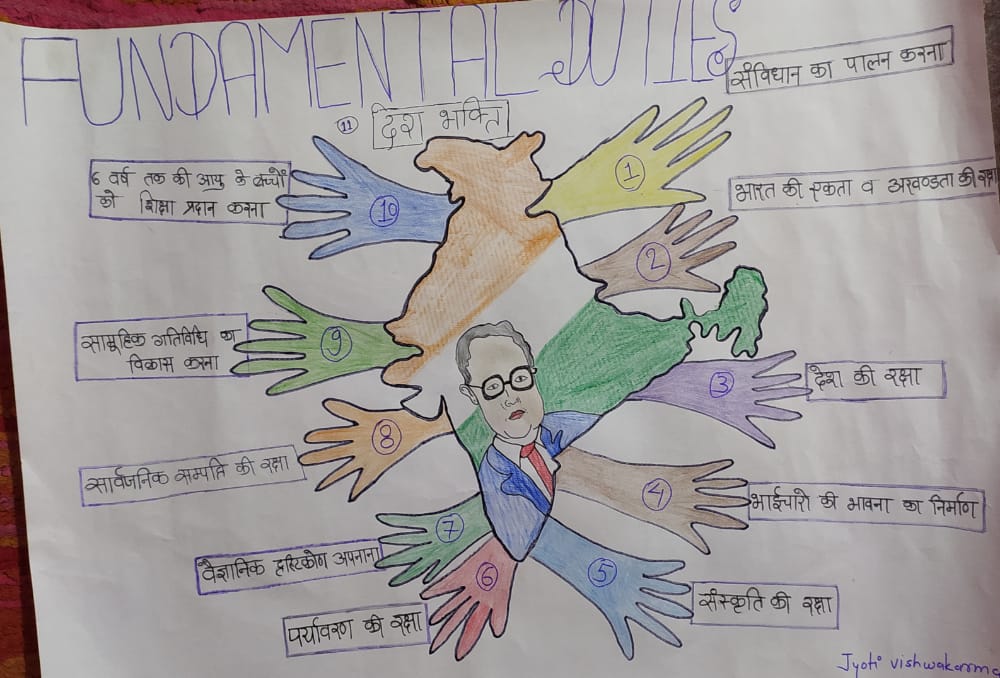 FUNDAMENTAL DUTIES
संविधान का पालन करना
11 देश भक्ति
1
6 वर्ष तक की आयु के बच्चों
को शिक्षा प्रदान करना
10
भारत की एकता व अखण्डता की रक्षा
2
सामूहिक गतिविधि का
विकास करना
9
3
देश की रक्षा
8
सार्वजनिक सम्पत्ति की रक्षा
4
भाईचारे की भावना का निर्माण
7
वैज्ञानिक दृष्टिकोण अपनाना
6
5
पर्यावरण की रक्षा
संस्कृति की रक्षा
Jyoti vishwakarma